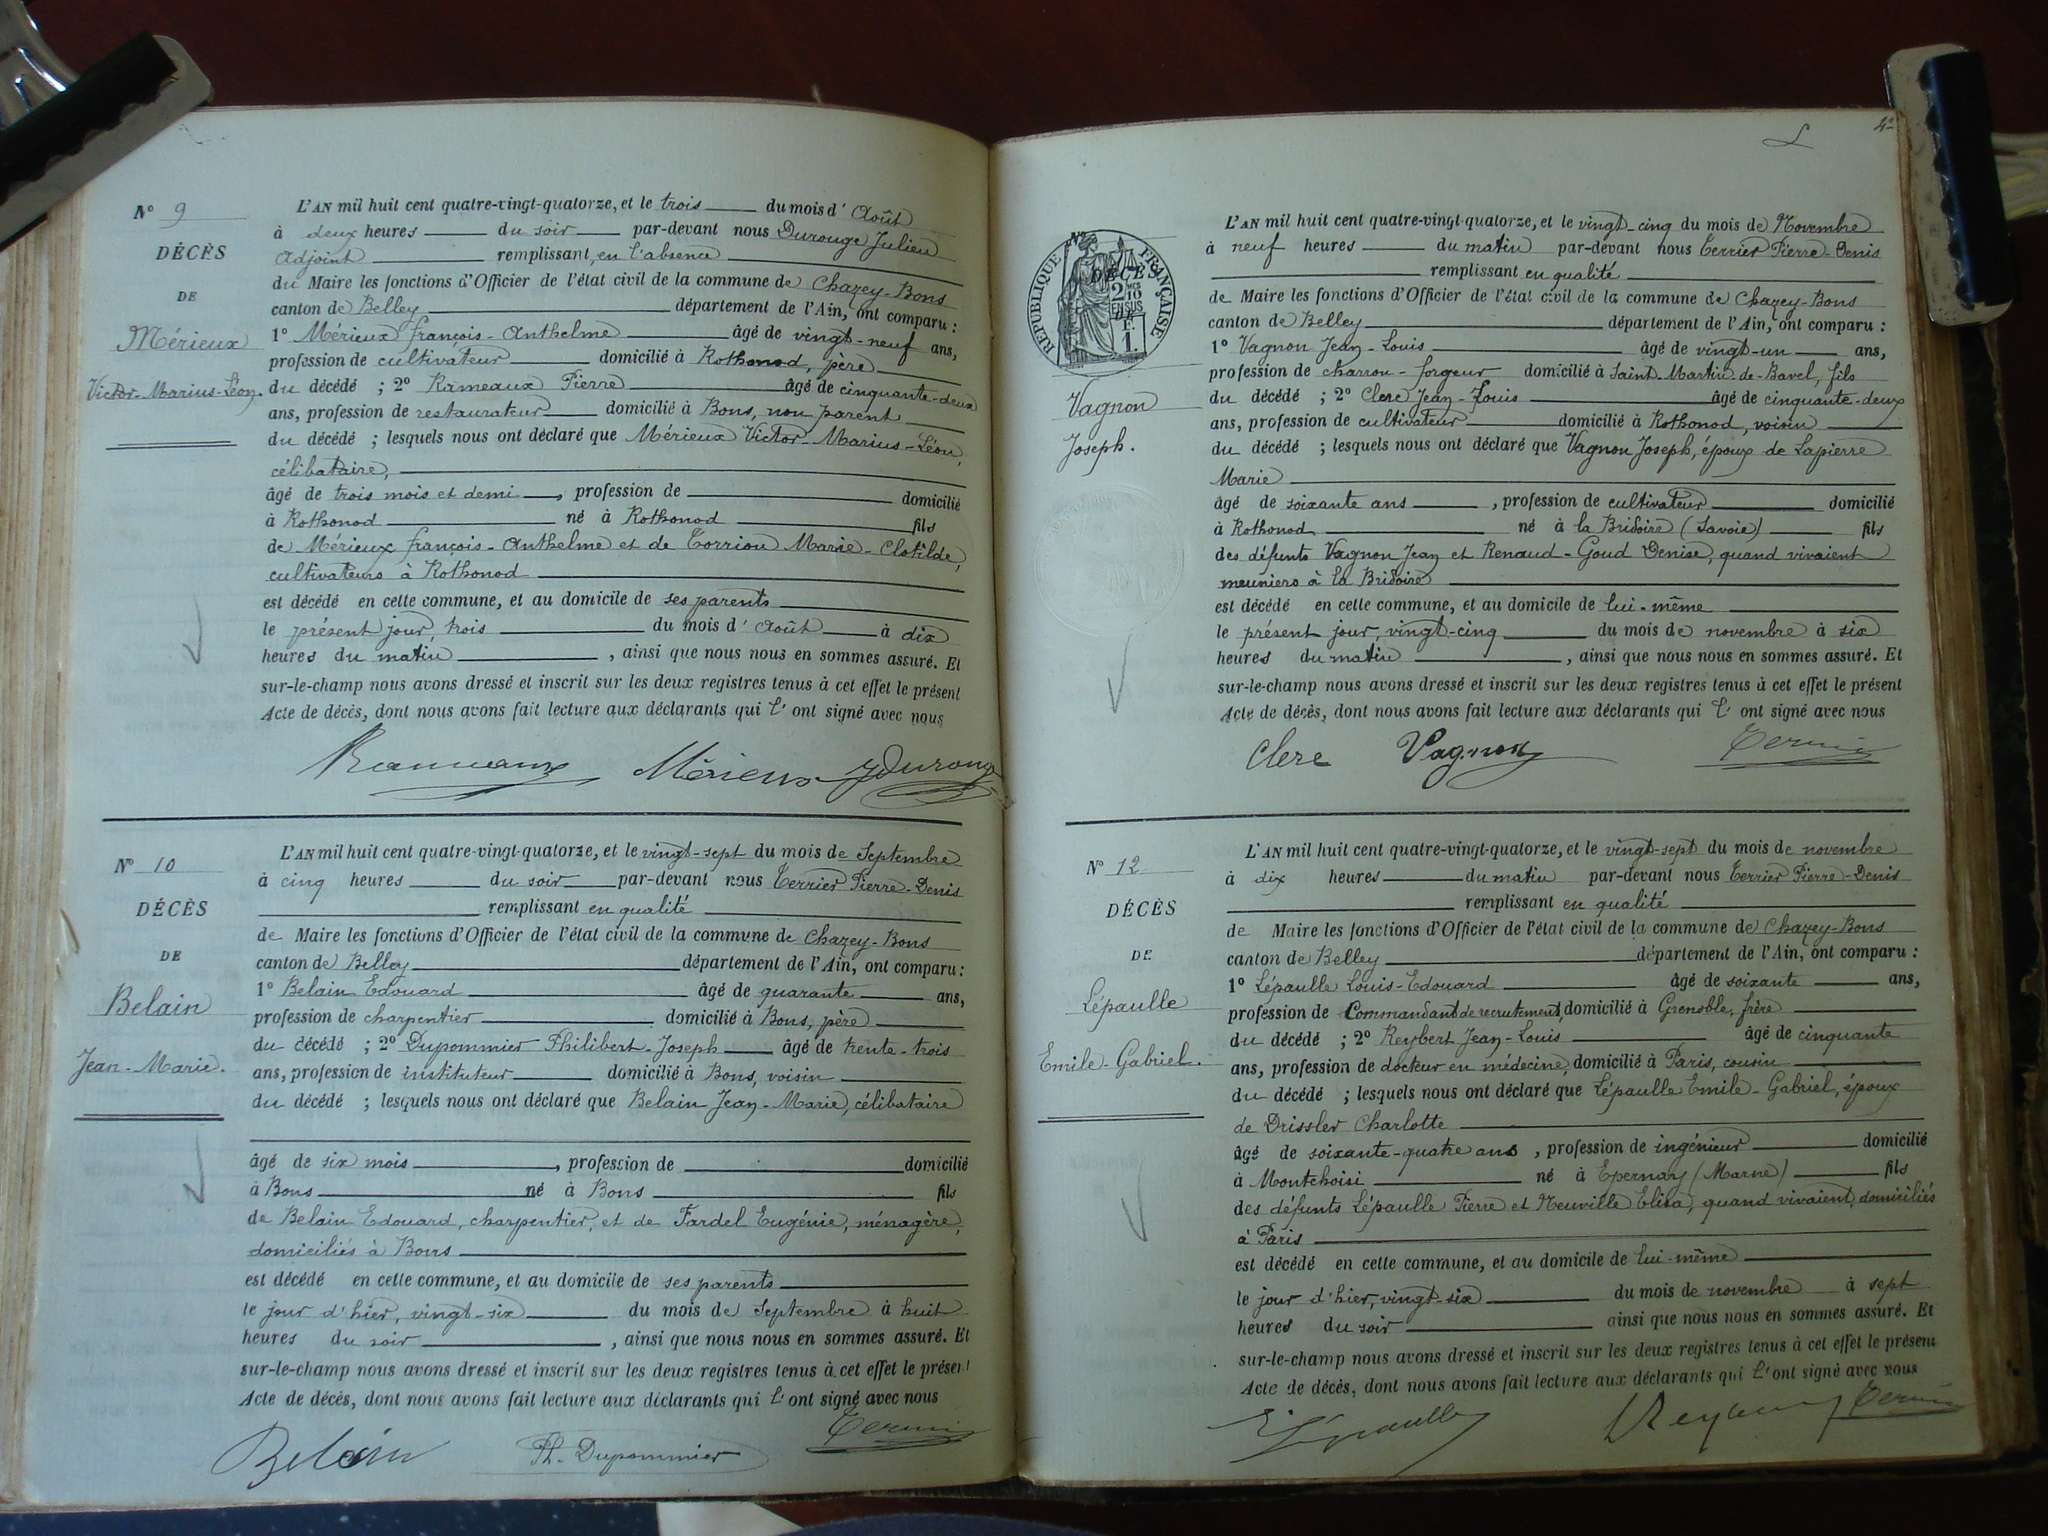 N° 9
DÉCÈS
DE
Mérieux
Victor-Marius-Léon.
L'AN mil huit cent quatre-vingt-quatorze, et le trois du mois d'Août
à deux heures du soir par-devant nous Durouge Julien
Adjoint remplissant, en l'absence
du Maire les fonctions d'Officier de l'état civil de la commune de Chazey-Bons
canton de Belley département de l'Ain, ont comparu :
1° Mérieux François-Anthelme âgé de vingt-neuf ans,
profession de cultivateur domicilié à Rothonod, père
du décédé ; 2° Rameaux Pierre âgé de cinquante-deux
ans, profession de restaurateur domicilié à Bons, non parent
du décédé ; lesquels nous ont déclaré que Mérieux Victor-Marius-Léon,
célibataire,
âgé de trois mois et demi, profession de domicilié
à Rothonod né à Rothonod fils
de Mérieux François-Anthelme et de Torrion Marie-Clotilde,
cultivateurs à Rothonod
est décédé en cette commune, et au domicile de ses parents
le présent jour, trois du mois d'Août à dix
heures du matin, ainsi que nous nous en sommes assuré. Et
sur-le-champ nous avons dressé et inscrit sur les deux registres tenus à cet effet le présent
Acte de décès, dont nous avons fait lecture aux déclarants qui l'ont signé avec nous
Rameaux Mérieux JDurouge
N° 10
DÉCÈS
DE
Belain
Jean-Marie.
L'AN mil huit cent quatre-vingt-quatorze, et le vingt-sept du mois de Septembre
à cinq heures du soir par-devant nous Terrier Pierre-Denis
remplissant en qualité
de Maire les fonctions d'Officier de l'état civil de la commune de Chazey-Bons
canton de Belley département de l'Ain, ont comparu :
1° Belain Edouard âgé de quarante ans,
profession de charpentier domicilié à Bons, père
du décédé ; 2° Dupommier Philibert-Joseph âgé de trente-trois
ans, profession de instituteur domicilié à Bons, voisin
du décédé ; lesquels nous ont déclaré que Belain Jean-Marie, célibataire
âgé de six mois, profession de domicilié
à Bons né à Bons fils
de Belain Edouard, charpentier, et de Fardel Eugénie, ménagère,
domiciliés à Bons
est décédé en cette commune, et au domicile de ses parents
le jour d'hier, vingt-six du mois de Septembre à huit
heures du soir, ainsi que nous nous en sommes assuré. Et
sur-le-champ nous avons dressé et inscrit sur les deux registres tenus à cet effet le présent
Acte de décès, dont nous avons fait lecture aux déclarants qui l'ont signé avec nous
Belain Ph. Dupommier Terrier
N°
DÉCÈS
RÉPUBLIQUE FRANÇAISE
2 MES 10
EN SUS
1 F.
Vagnon
Joseph.
L'AN mil huit cent quatre-vingt-quatorze, et le vingt-cinq du mois de Novembre
à neuf heures du matin par-devant nous Terrier Pierre-Denis
remplissant en qualité
de Maire les fonctions d'Officier de l'état civil de la commune de Chazey-Bons
canton de Belley département de l'Ain, ont comparu :
1° Vagnon Jean-Louis âgé de vingt-un ans,
profession de charron-forgeur domicilié à Saint-Martin-de-Bavel, fils
du décédé ; 2° Clerc Jean-Louis âgé de cinquante-deux
ans, profession de cultivateur domicilié à Rothonod, voisin
du décédé ; lesquels nous ont déclaré que Vagnon Joseph, époux de Lapierre
Marie
âgé de soixante ans, profession de cultivateur domicilié
à Rothonod né à la Bridoire (Savoie) fils
des défunts Vagnon Jean et Renaud-Goud Denise, quand vivaient
meuniers à la Bridoire
est décédé en cette commune, et au domicile de lui-même
le présent jour, vingt-cinq du mois de novembre à six
heures du matin, ainsi que nous nous en sommes assuré. Et
sur-le-champ nous avons dressé et inscrit sur les deux registres tenus à cet effet le présent
Acte de décès, dont nous avons fait lecture aux déclarants qui l'ont signé avec nous
Clerc Vagnon Terrier
N° 12
DÉCÈS
DE
Lépaulle
Emile-Gabriel.
L'AN mil huit cent quatre-vingt-quatorze, et le vingt-sept du mois de novembre
à dix heures du matin par-devant nous Terrier Pierre-Denis
remplissant en qualité
de Maire les fonctions d'Officier de l'état civil de la commune de Chazey-Bons
canton de Belley département de l'Ain, ont comparu :
1° Lépaulle Louis-Edouard âgé de soixante ans,
profession de Commandant de recrutement, domicilié à Grenoble, frère
du décédé ; 2° Reybert Jean-Louis âgé de cinquante
ans, profession de docteur en médecine, domicilié à Paris, cousin
du décédé ; lesquels nous ont déclaré que Lépaulle Emile-Gabriel, époux
de Drissler Charlotte
âgé de soixante-quatre ans, profession de ingénieur domicilié
à Montchoisi né à Epernay (Marne) fils
des défunts Lépaulle Pierre et Neuville Elisa, quand vivaient, domiciliés
à Paris
est décédé en cette commune, et au domicile de lui-même
le jour d'hier, vingt-six du mois de novembre à sept
heures du soir ainsi que nous nous en sommes assuré. Et
sur-le-champ nous avons dressé et inscrit sur les deux registres tenus à cet effet le présent
Acte de décès, dont nous avons fait lecture aux déclarants qui l'ont signé avec nous
Lépaulle Reybert Terrier